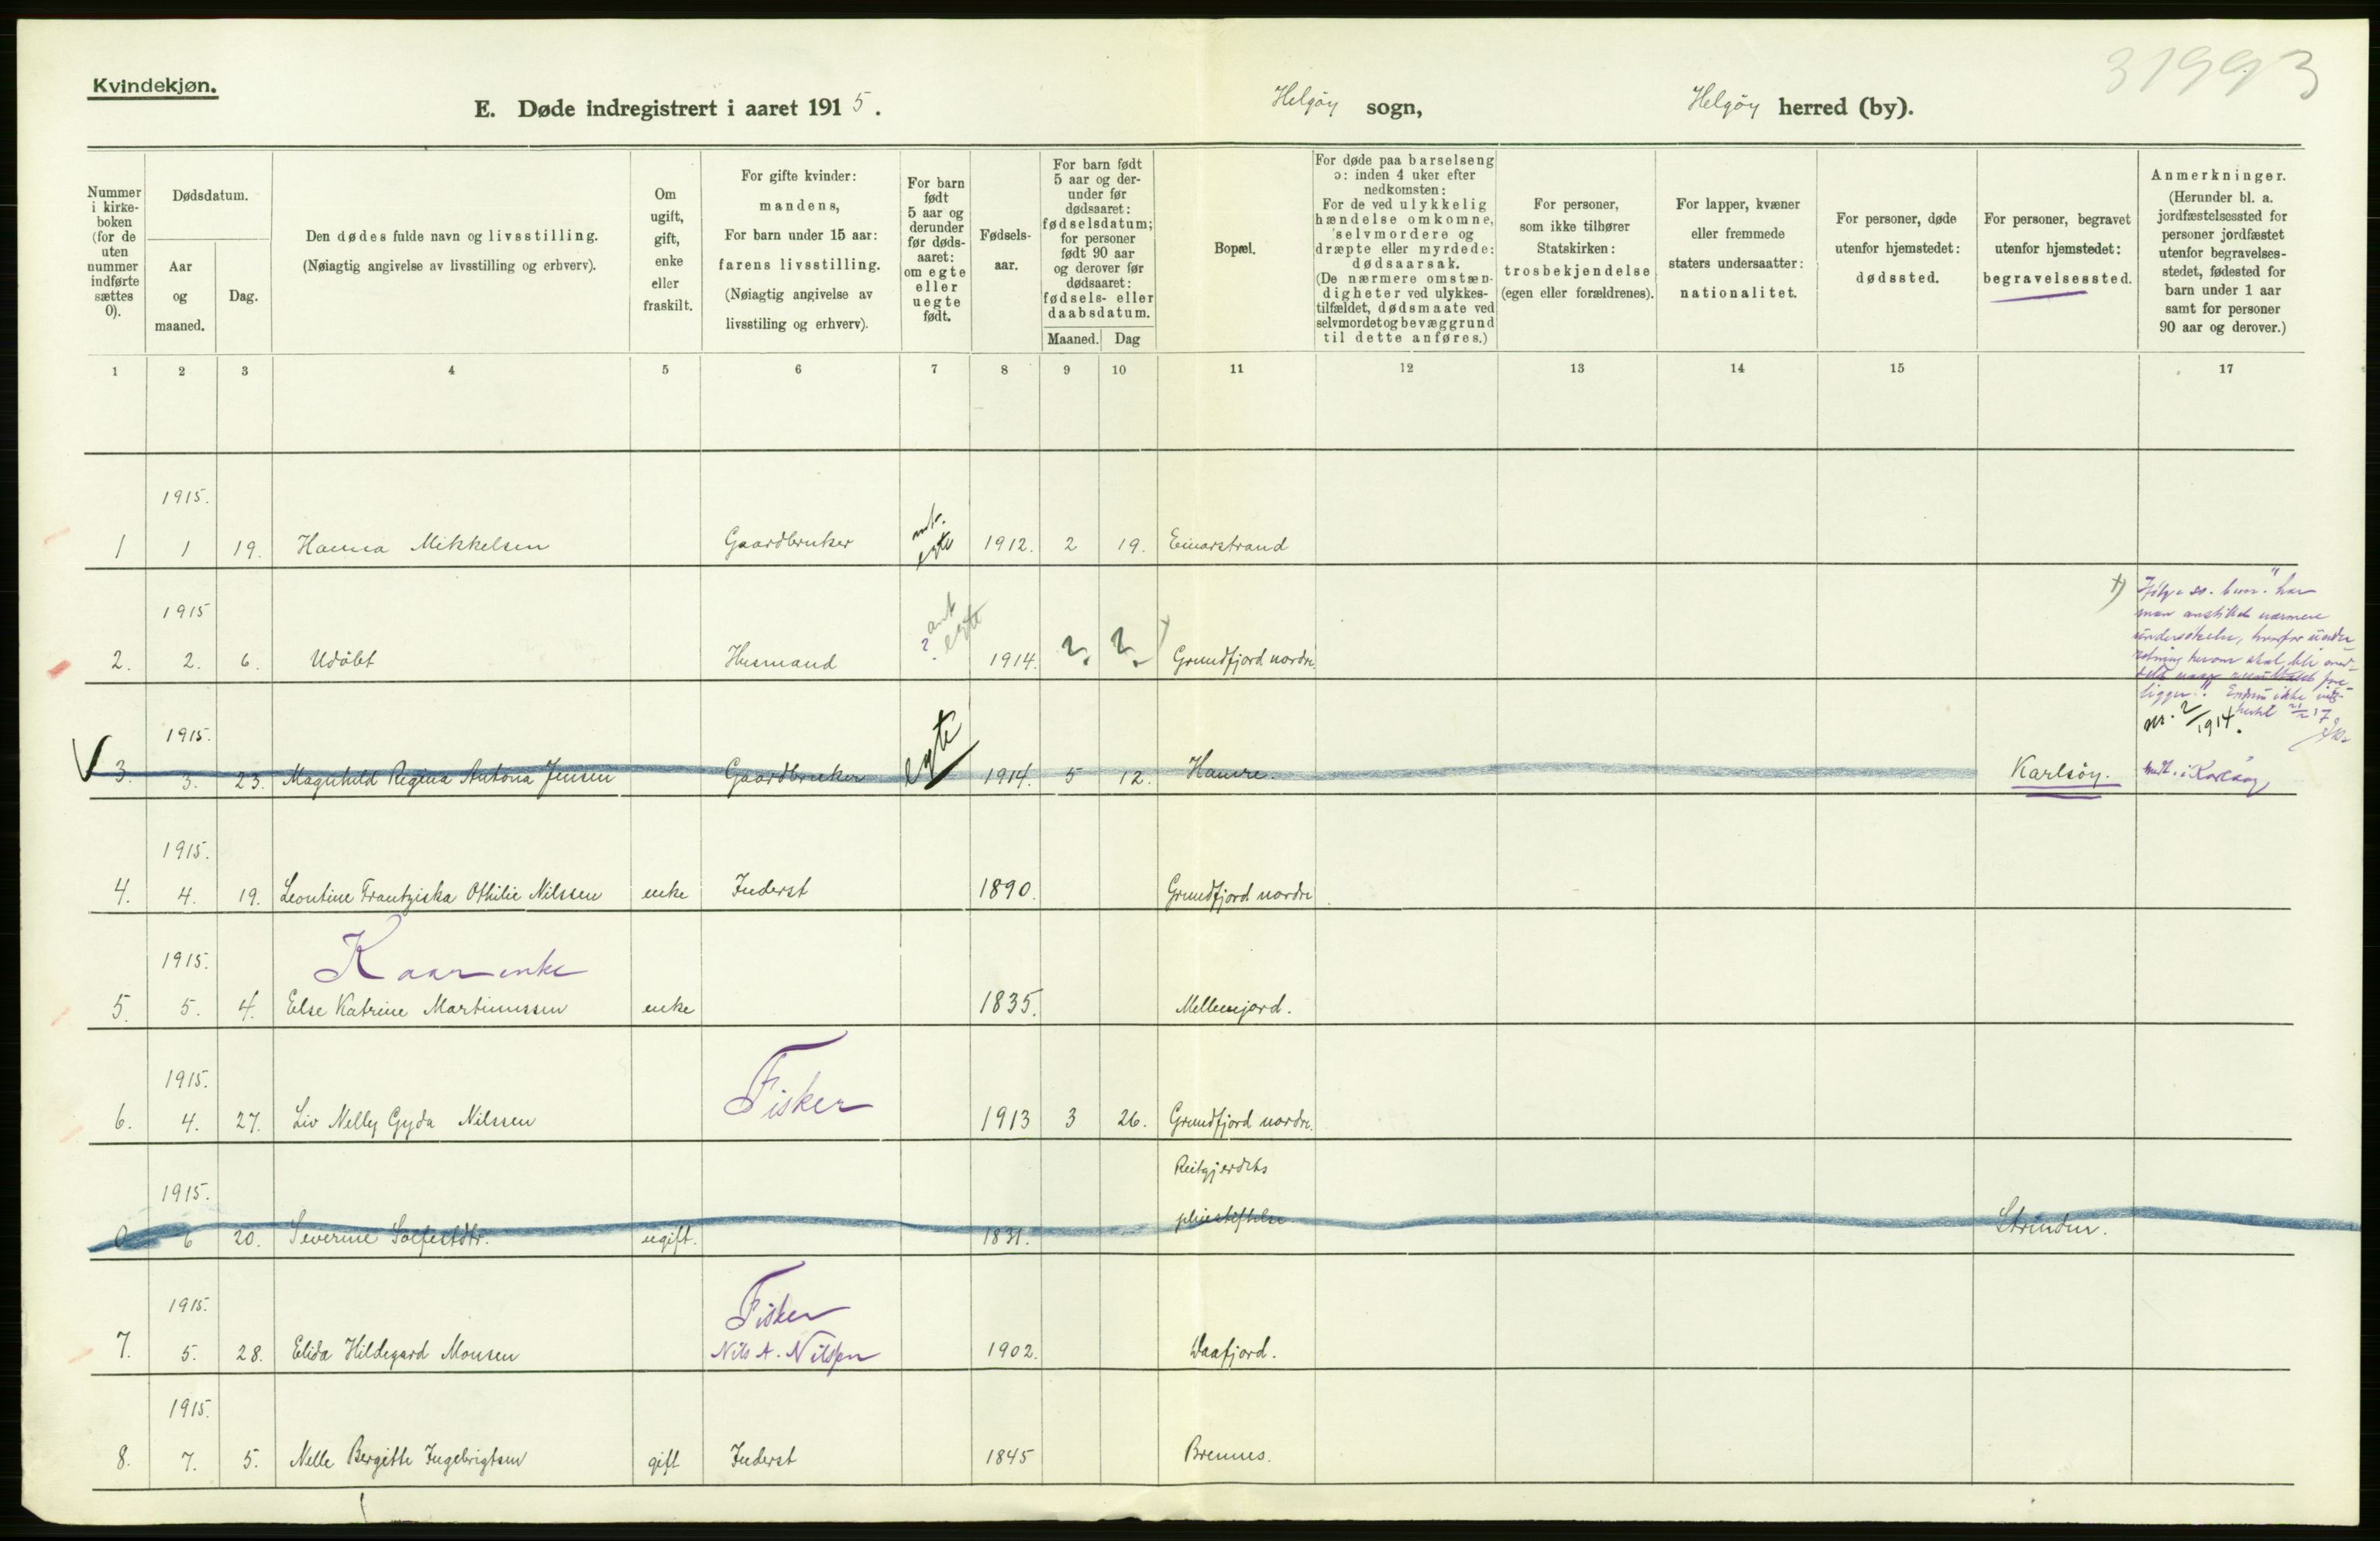 31993
Kvindekjøn.
E. Døde indregistrert i aaret 1915.
Helgöy sogn,
Helgöy herred (by).
Nummer i kirke-boken (for de uten nummer indførte sættes 0).
Dødsdatum.
Aar og maaned.
Dag.
Den dødes fulde navn og livsstilling.
(Nøiagtig angivelse av livsstilling og erhverv).
Om ugift, gift, enke eller fraskilt.
For gifte kvinder: mandens,
For barn under 15 aar: farens livsstilling.
(Nøiagtig angivelse av livsstiling og erhverv).
For barn født 5 aar og derunder før døds-aaret: om egte eller uegte født.
Fødsels-aar.
For barn født 5 aar og der-under før dødsaaret: fødselsdatum; for personer født 90 aar og derover før dødsaaret: fødsels- eller daabsdatum.
Maaned. Dag
Bopæl.
For døde paa barselseng ɔ: inden 4 uker efter nedkomsten:
For de ved ulykkelig hændelse omkomne, selvmordere og dræpte eller myrdede: dødsaarsak.
(De nærmere omstæn-digheter ved ulykkes-tilfældet, dødsmaate ved selvmordet og bevæggrund til dette anføres.)
For personer, som ikke tilhører Statskirken: trosbekjendelse (egen eller forældrenes).
For lapper, kvæner eller fremmede staters undersaatter: nationalitet.
For personer, døde utenfor hjemstedet: dødssted.
For personer, begravet utenfor hjemstedet: begravelsessted.
Anmerkninger.
(Herunder bl. a. jordfæstelsessted for personer jordfæstet utenfor begravelses-stedet, fødested for barn under 1 aar samt for personer 90 aar og derover.)
1 2 3 4 5 6 7 8 9 10 11 12 13 14 15 17
1915.
1 1 19. Hanna Mikkelsen Gaardbruker egte 1912. 2 19. Einarstrand
1915
2. 2. 6. Udöbt Husmand ? ant egte 1914. ? ? Grundfjord nordre
man anstillet nærmere
nr. 2/1914.
1915.
3. 3. 23. Magnhild Regina Antona Jensen Gaardbruker egte 1914. 5 12. Hamre. Karlsöy. i Karlsöy
1915.
4. 4. 19. Leontine Frantziska Othilie Nilssen enke Inderst 1890. Grundfjord nordre
1915. Kaarenke
5. 5. 4. Else Katrine Martinussen enke 1835. Mellemjord.
1915. Fisker
6. 4. 27. Liv Nelly Gyda Nilssen 1913 3 26. Grundfjord nordre.
Reitgjerdets
1915. pleiestiftelse
0 6 20. Severine Solfestdtr. ugift. 1831. Strinden.
1915. Fisker
7. 5. 28. Elida Hildegard Monsen Nils A. Nilsen 1902. Waafjord.
1915.
8. 7. 5. Nelle Bergitte Ingebrigtsen gift Inderst 1845 Brennes.